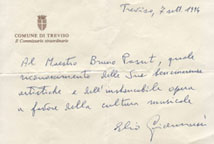 COMUNE DI TREVISO
Il Commissario straordinario
Treviso, 7 sett. 1994
Al Maestro Bruno Pasut, quale
riconoscimento delle Sue benemerenze
artistiche e dell'instancabile opera
a favore della cultura musicale